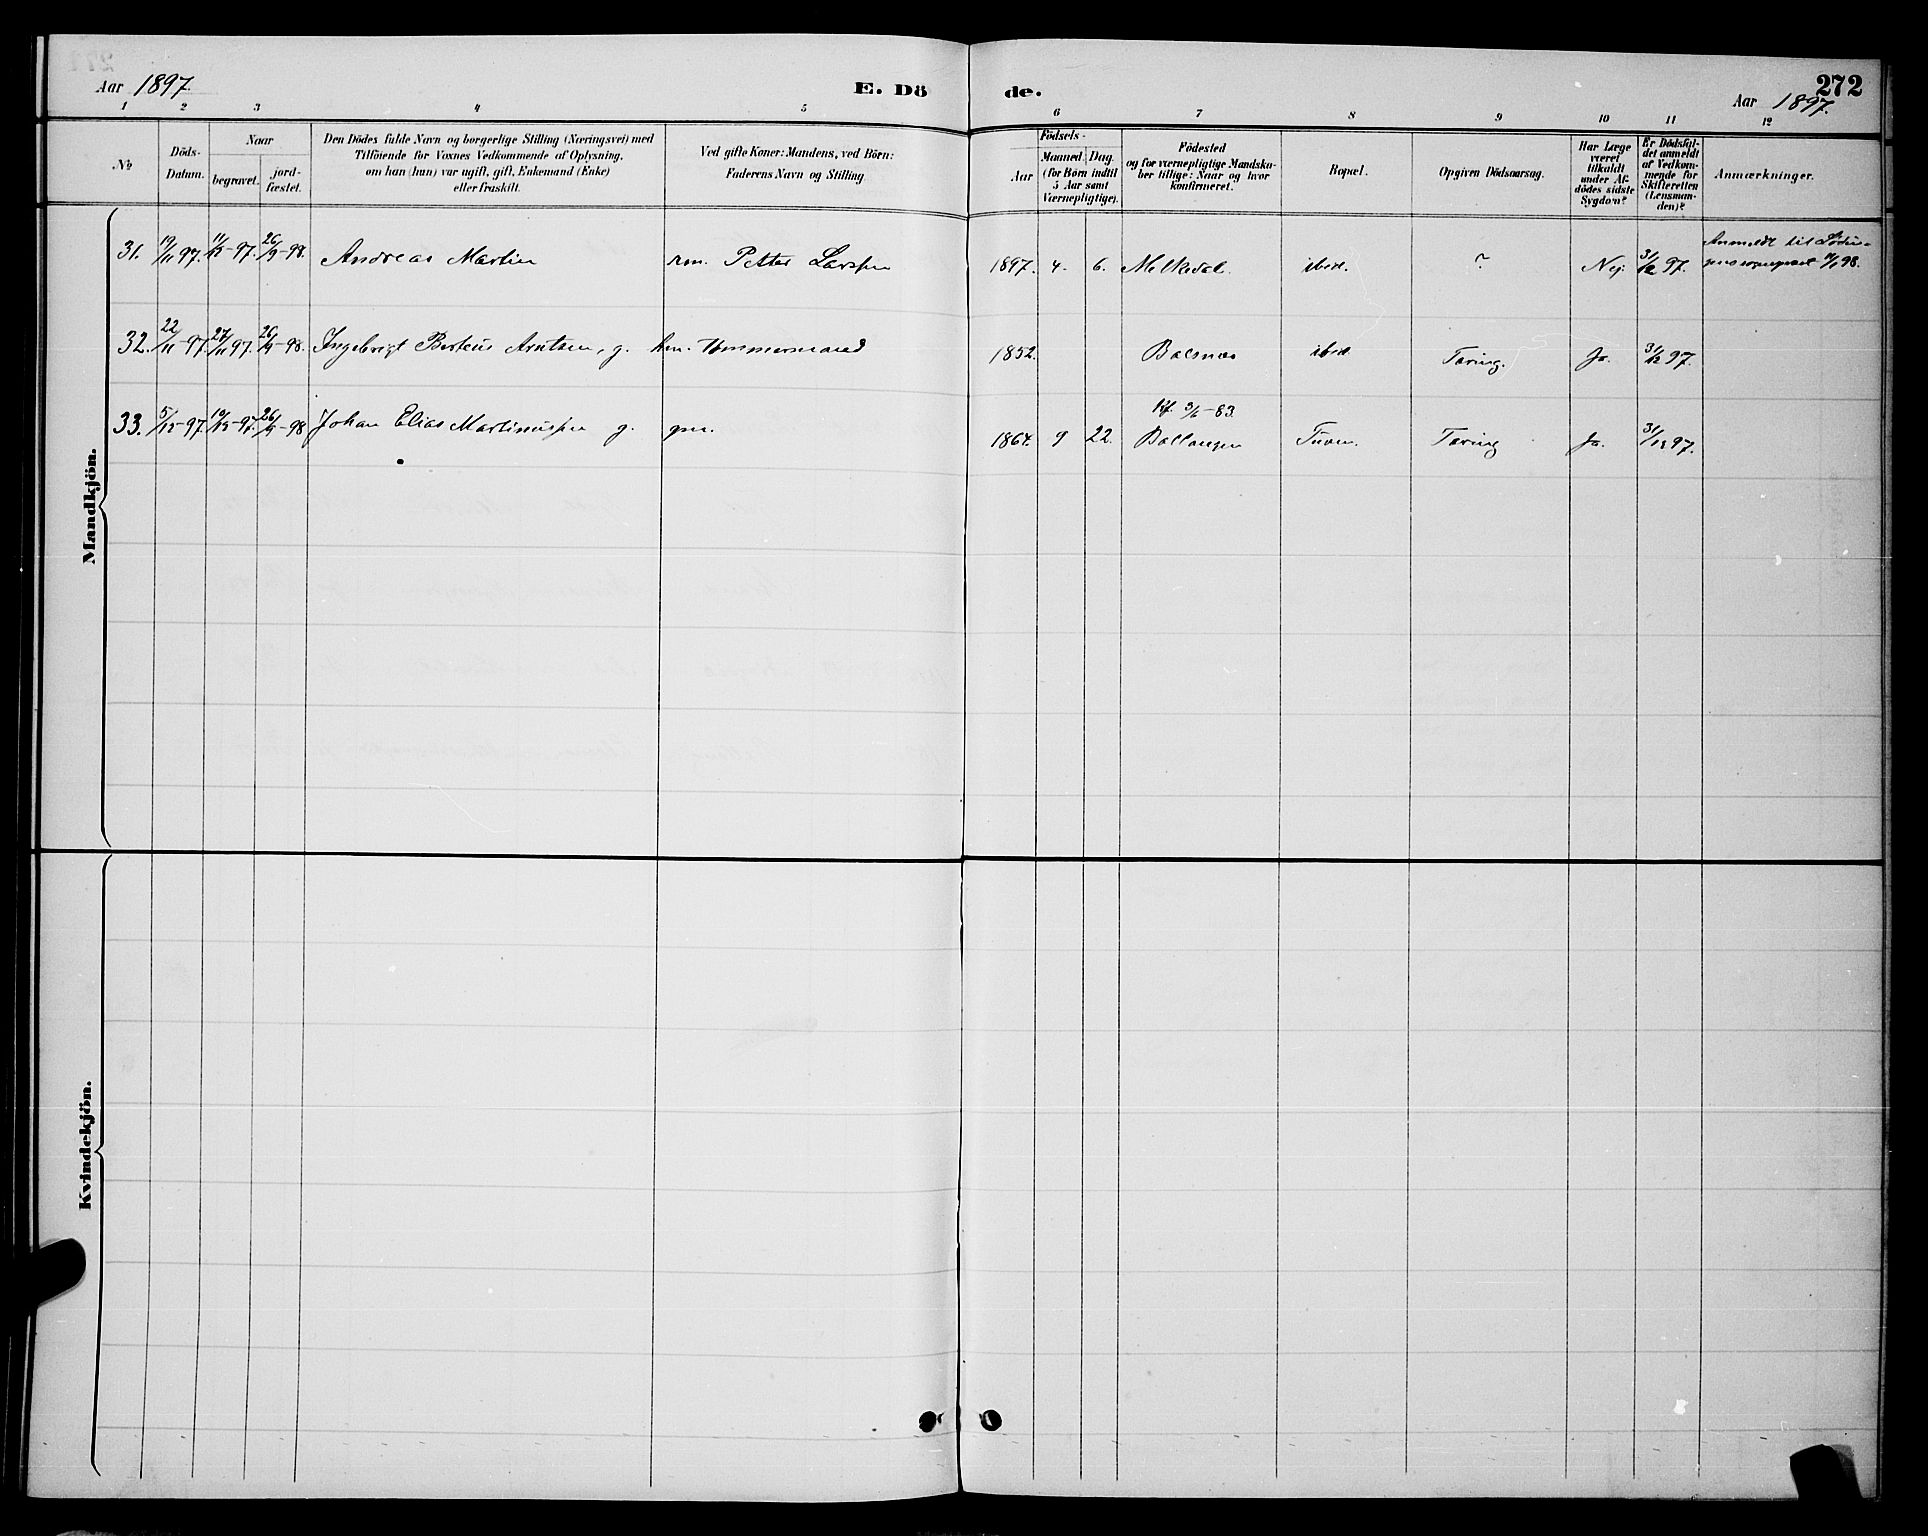 Aar 1897.
E. Dö
de.
272
Aar 1897.
1 2 3 4 5 6 7 8 9 10 11 12
No
Döds-
Datum.
Naar
begravet.
jord-
fæstet.
Den Dödes fulde Navn og borgerlige Stilling (Næringsvei) med
Tilföiende for Voxnes Vedkommende af Oplysning,
om han (hun) var ugift, gift, Enkemand (Enke)
eller fraskilt.
Ved gifte Koner: Mandens, ved Börn:
Faderens Navn og Stilling.
Födsels-
Aar
Maaned. Dag.
(for Börn indtil
5 Aar samt
Værnepligtige).
Födested
og for værnepligtige Mandska-
ber tillige: Naar og hvor
konfirmeret.
Bopæl.
Opgiven Dödsaarsag.
Har Læge
været
tilkaldt
under Af-
dödes sidste
Sygdom?
Er Dödsfal-
det anmeldt
af Vedkom-
mende for
Skifteretten
(Lensman-
den)?
Anmærkninger.
Mandkjön.
31. 19/11 97. 11/12-97. 26/9-98. Andreas Martin Petter Larssen 1897. 4. 6. Melkedal ibid. ? Nej 31/12 97. Anmeldt til 98.
32. 22/11-97. 27/11 97. 26/9-98. Ingebrigt Berteus Arntsen, g. Tømmermand 1852. Balsnes ibid. Tæring. Ja. 31/12 97.
Kf. 3/6-83.
33. 5/12-97. 19/12-97. 26/9-98 Johan Elias Martinussen g. gm. 1864. 9 22. Ballangen Tuven. Tæring Ja. 31/12 97.
Kvindekjön.